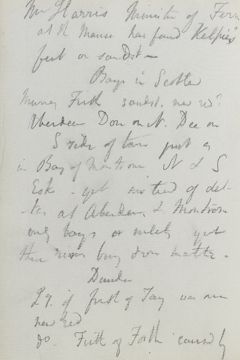 Mr Harris Minister of Fern
at R Manse has found Kelpie's
feet on sandst -
Bays in Scotld
Murray Frith sandst. new red.
Aberdeen Don on N. Dee on
S side of town just as
in Bay of Montrose N & S
Esk - yet instead of del-
tas at Aberdeen & Montrose
only bays or inlets yet
these rivers bring down matter.
Dundee
Q.y if first of Tay was new
new red
Do. Frith of Forth caused by